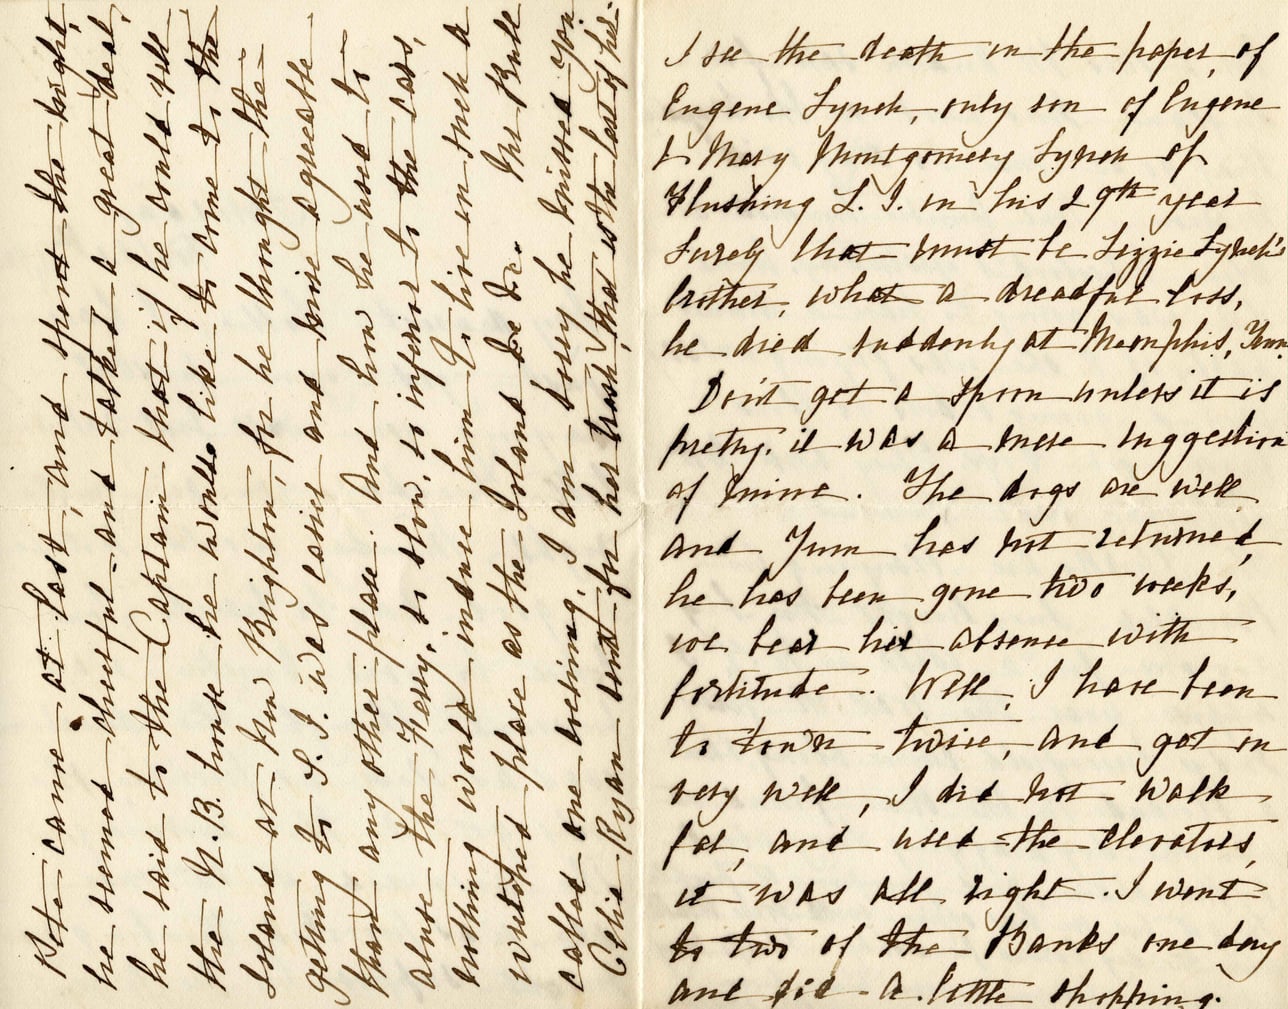 Pete came at last, and spent the night,
he seemed cheerful and talked a great deal,
he said to the Captain that if he could sell
the N.B. house he would like to come to the
Island at New Brighton, for he thought the
getting to S. I. was easier and more agreeable
than any other place. And how he used to
abuse the Ferry, so slow, so inferior to the cars,
nothing would induce him to live in such a
wretched place as the Island &c &c. Mr Bull
called one evening, I am sorry he missed you
Celia Ryan sent for her trash, that is the last of her.
I see the death in the paper, of
Eugene Lynch, only son of Eugene
& Mary Montgomery Lynch of
Flushing L. I. in his 29th year
Surely that must be Lizzie Lynch's
brother, what a dreadful loss,
he died suddenly at Memphis, Tenn.
Don't get a spoon unless it is
pretty. it was a mere suggestion
of mine. The dogs are well
and Yum has not returned,
he has been gone two weeks,
we bear his absence with
fortitude. Well, I have been
to town twice, and got on
very well, I did not walk
far, and used the elevators,
it was all right. I went
to two of the Banks one day
and did a little shopping.